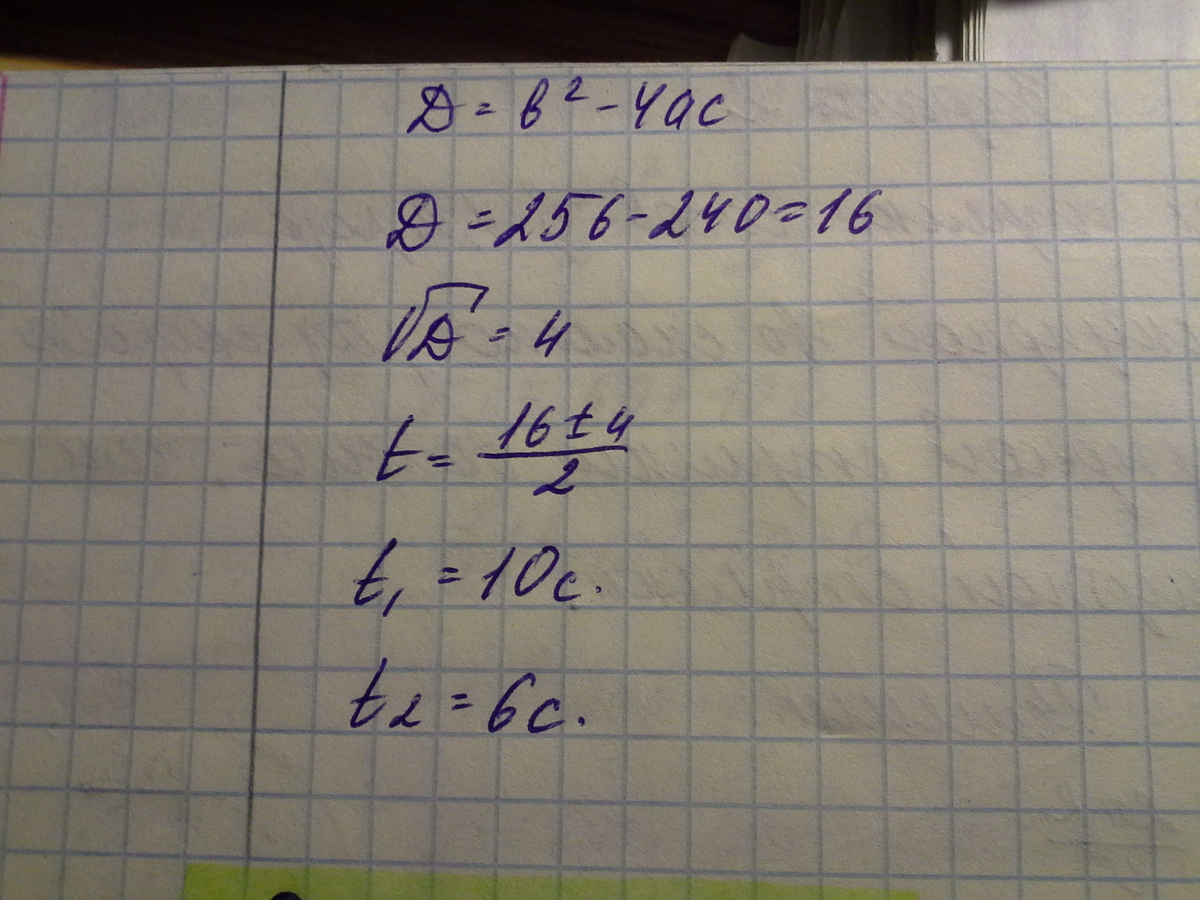 D = b² - 4ac
D = 256 - 240 = 16
√D = 4
t = (16 ± 4) / 2
t₁ = 10с.
t₂ = 6с.